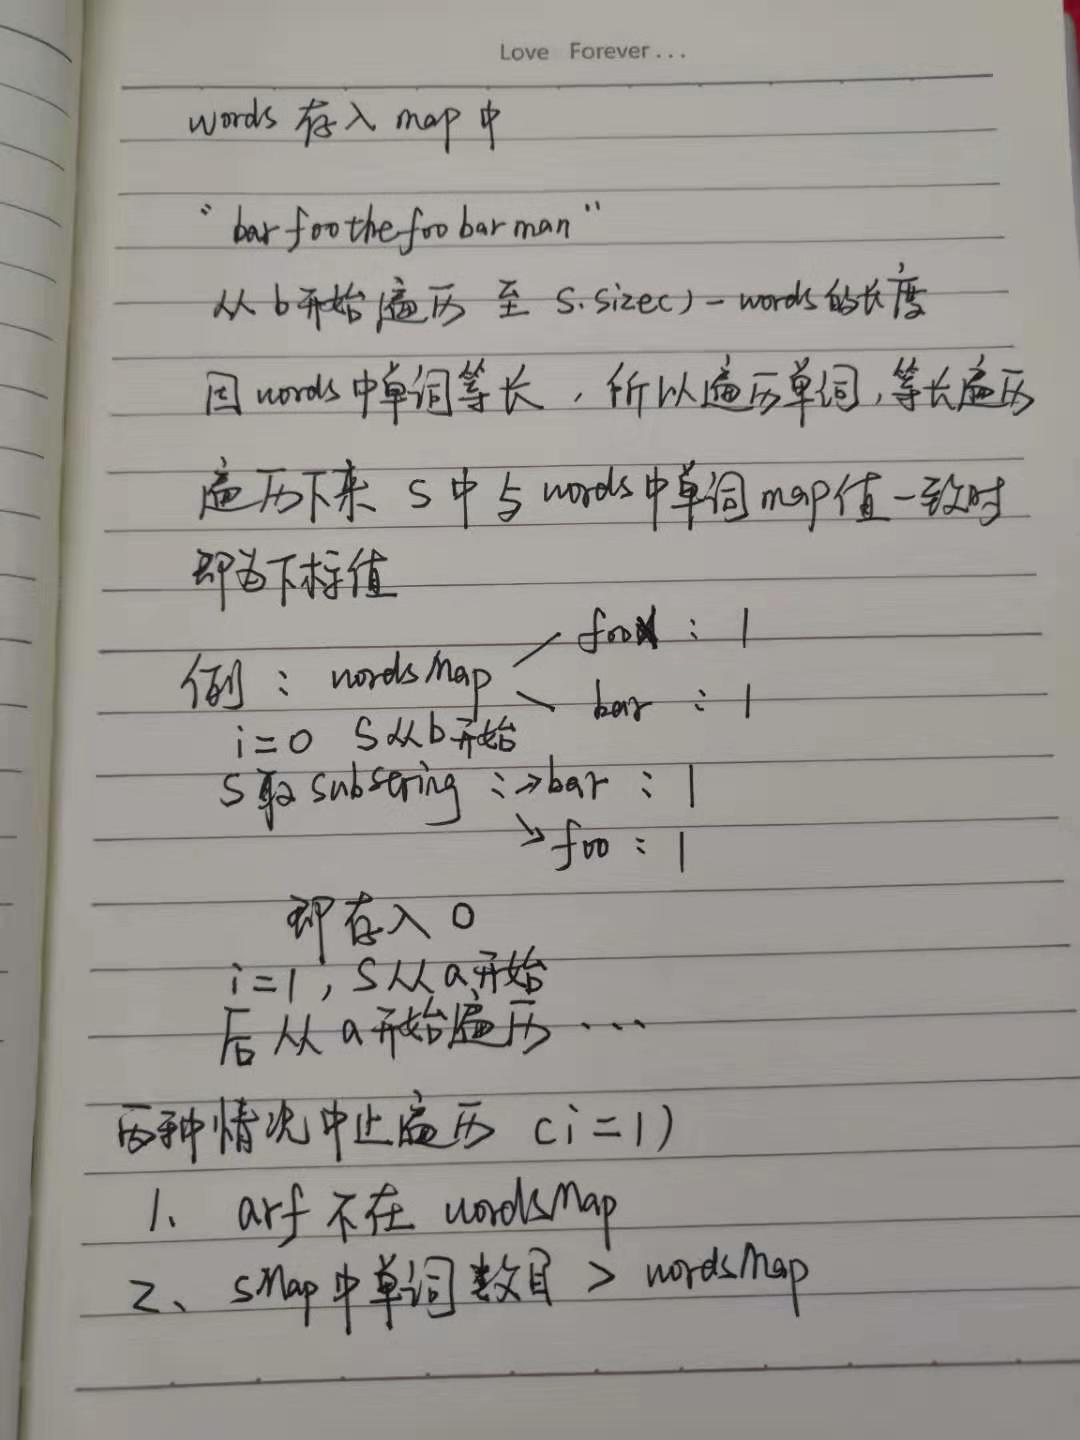 Love Forever...
words 存入 map 中
"barfoothefoobarman"
从b开始遍历 至 s.size()-words的长度
因words中单词等长，所以遍历单词，等长遍历
遍历下来 S中与words中单词map值一致时
即为下标值
例：wordsMap foo：1
bar：1
i=0 S从b开始
S取substring：→bar：1
→foo：1
即存入0
i=1，S从a开始
后从a开始遍历...
两种情况中止遍历 (i=1)
1、arf不在 wordsMap
2、sMap中单词数目 > wordsMap